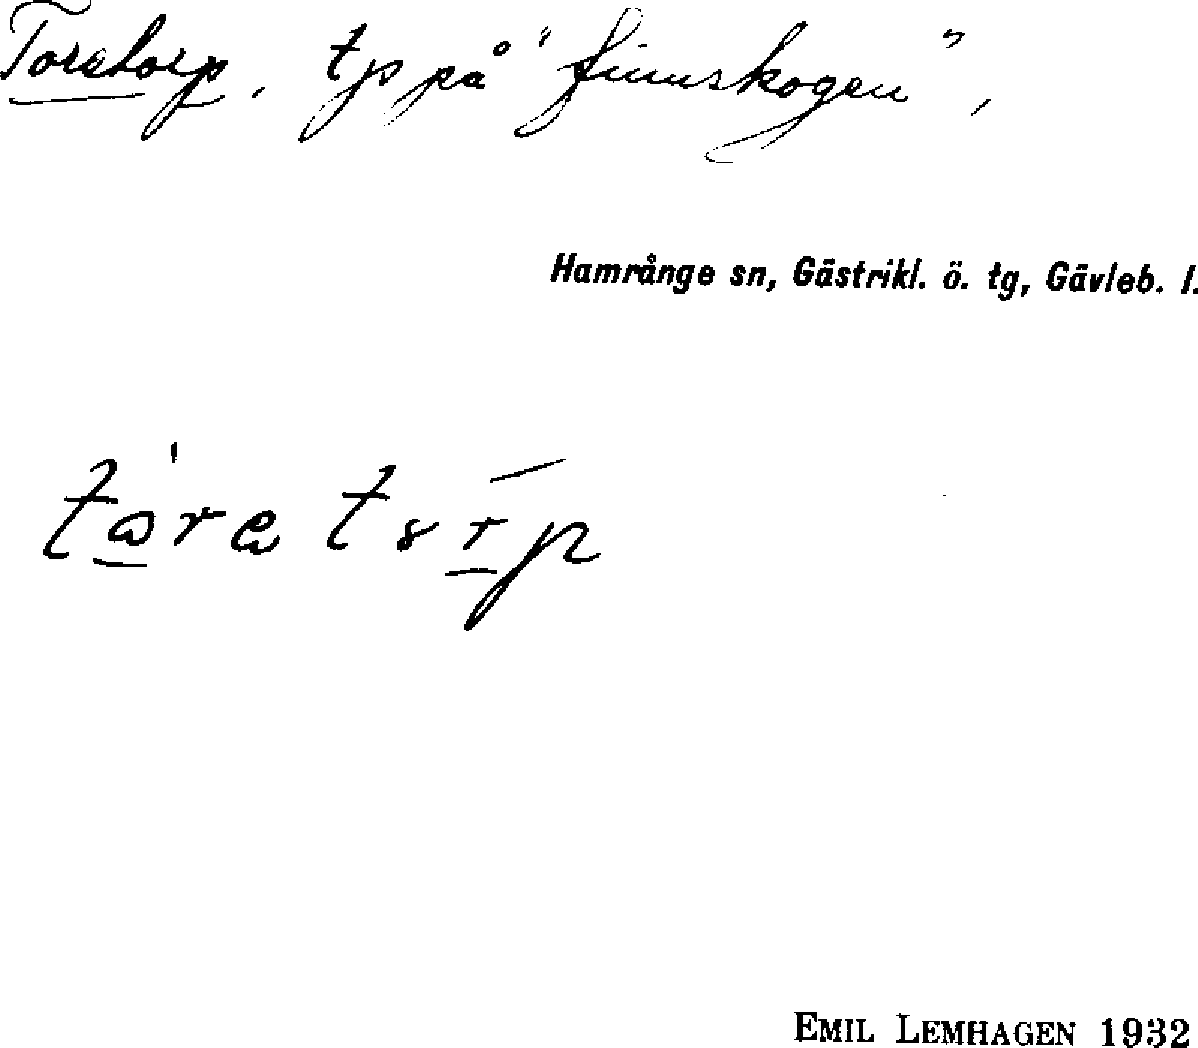 Toretorp, tp på "finnskogen",
Hamrånge sn, Gästrikl. ö. tg, Gävleb. l.
EMIL LEMHAGEN 1932